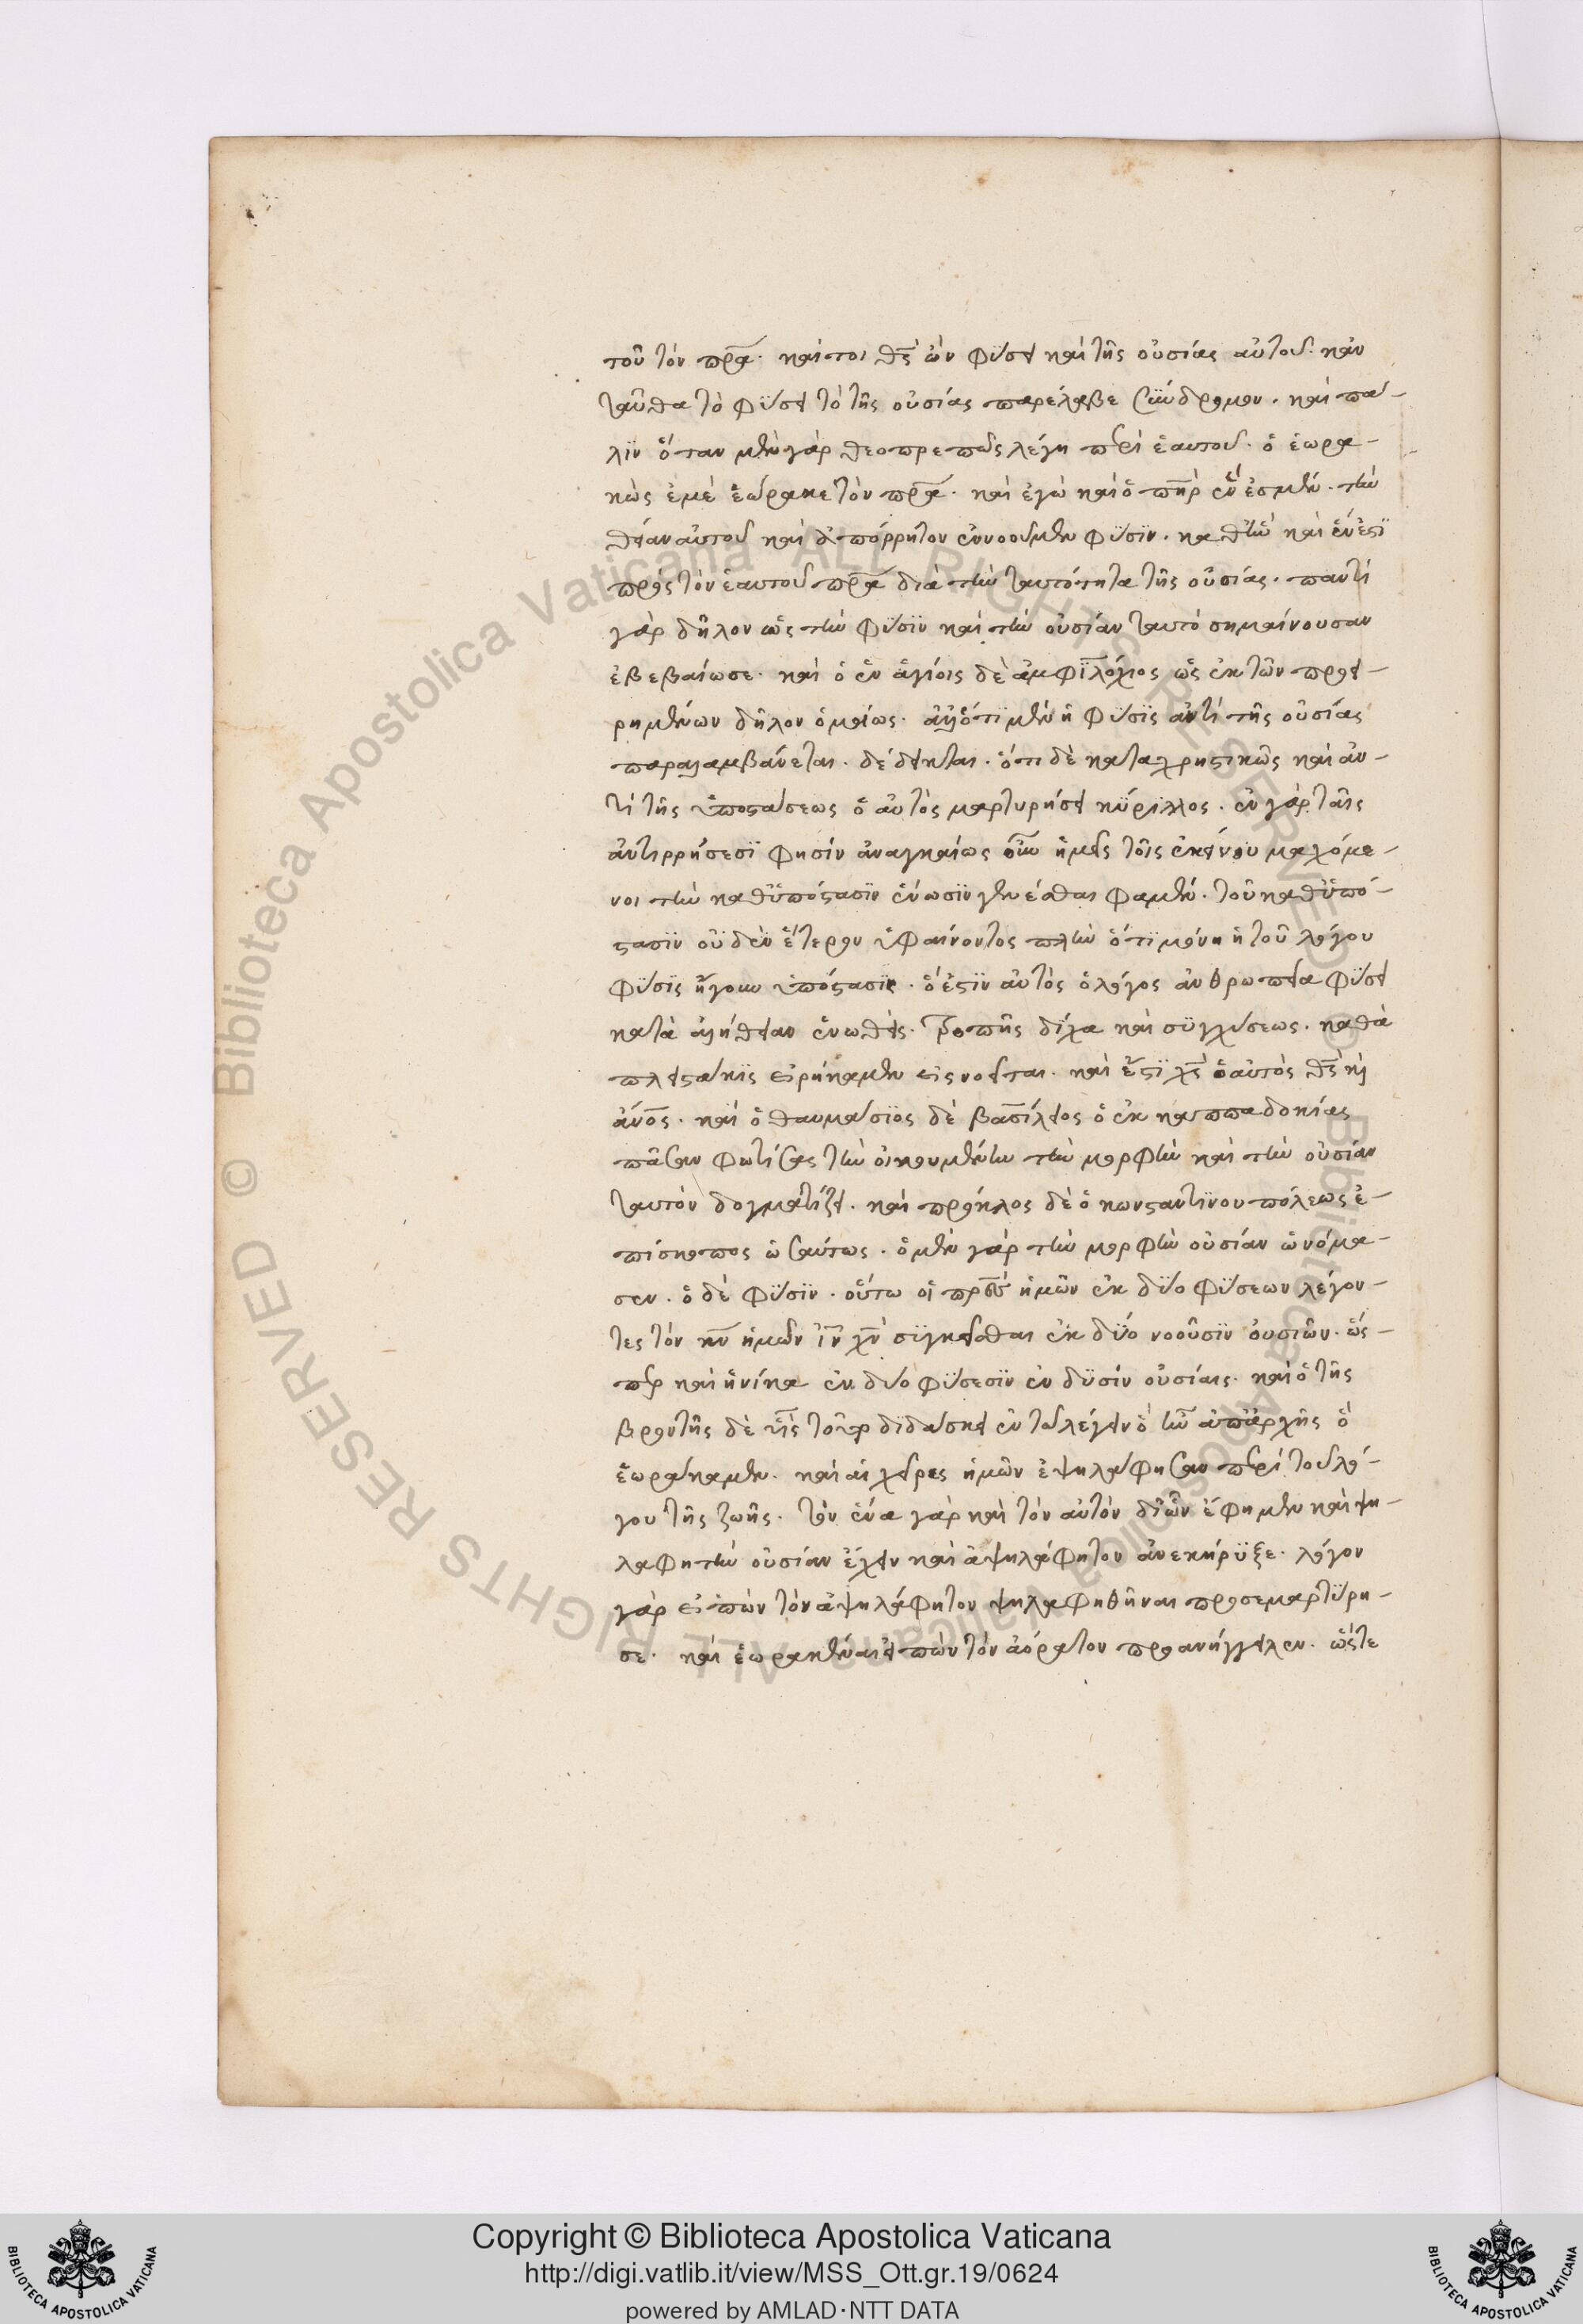 τοῦ τὸν πρα̅. καίτοι θς̅ ὢν φύσει καὶ τῆς οὐσίας αὐτοῦ. κἀν
ταῦθα τὸ φύσει τὸ τῆς οὐσίας παρέλαβε σύνδρομον. καὶ πά-
λϊν ὅταν μὲν γὰρ θεοπρεπῶς λέγη περὶ ἑαυτοῦ. ὁ ἑωρα-
κὼς ἐμὲ ἑώρακε τὸν πρα̅. καὶ ἐγὼ καὶ ὁ πηρ̅ ἕν ἐσμεν. τὴν
θείαν αὐτοῦ καὶ ἀπόρρητον ἐννοοῦμεν φύσϊν. καθ' ἣν καὶ ἕν ἐστϊ
πρὸς τὸν ἑαυτοῦ πρα̅ διὰ τὴν ταυτότητα τῆς οὐσίας. παντὶ
γὰρ δῆλον ὡς τὴν φύσϊν καὶ τὴν οὐσίαν ταυτὸ σημαίνουσαν
ἐβεβαίωσε. καὶ ὁ ἐν ἁγίοις δὲ ἀμφϊλόχιος ὡς ἐκ τῶν προει-
ρημένων δῆλον ὁμοίως. ἀλλ' ὅτϊ μὲν ἡ φύσϊς ἀντὶ τῆς οὐσίας
παραλαμβάνεται. δέδεικται. ὅτι δὲ καταχρηστικῶς καὶ ἀν-
τὶ τῆς ὑποστάσεως ὁ αὐτὸς μαρτυρήσει κύρϊλλος. ἐν γὰρ ταῖς
ἀντιρρήσεσϊ φησὶν ἀναγκαίως οὖν ἡμεῖς τοῖς ἐκείνου μαχόμε-
νοι τὴν καθ' ὑπόστασϊν ἕνωσϊν γενέσθαι φαμὲν. τοῦ καθ' ὑπό-
στασϊν οὐδὲν ἕτερον ὑφαίνοντος πλὴν ὅτϊ μόνη ἡ τοῦ λόγου
φύσϊς ἤγουν ὑπόστασϊς. ὅ ἐστϊν αὐτὸς ὁ λόγος ἀνθρωπεία φύσει
κατὰ ἀλήθειαν ἑνωθεὶς. τροπῆς δίχα καὶ συγχύσεως. καθὰ
πλειστάκϊς εἰρήκαμεν εἷς νοεῖται. καὶ ἔστϊ χς̅ ὁ αὐτὸς θς̅ κ̀
ἄνος̅. καὶ ὁ θαυμάσϊος δὲ βασίλειος ὁ ἐκ καππαδοκίας
πᾶσαν φωτίσας τὴν οἰκουμένην τὴν μορφὴν καὶ τὴν οὐσίαν
ταυτὸν δογματίζει. καὶ πρόκλος δὲ ὁ κωνσταντϊνουπόλεως ἐ-
πίσκοπος ὡσαύτως. ὁ μὲν γὰρ τὴν μορφὴν οὐσίαν ὠνόμα-
σεν. ὁ δὲ φύσϊν. οὕτω οἱ πρε̅ς ἡμῶν ἐκ δύο φύσεων λέγον-
τες τὸν κν̅ ἡμῶν ϊν̅ χν̅ συγκεῖσθαι ἐκ δύο νοοῦσϊν οὐσιῶν. ὥσ-
περ καὶ ἡνίκα ἐν δύο φύσεσϊν ἐν δυσὶν οὐσίαις. καὶ ὁ τῆς
βροντῆς δὲ υἱς̅ τοῦτο διδάσκει ἐν τῶ λέγειν ὃ ἦν ἀπ' ἀρχῆς ὃ
ἑωράκαμεν. καὶ αἱ χεῖρες ἡμῶν ἐψηλάφησαν περὶ τοῦ λό-
γου τῆς ζωῆς. τὸν ἕνα γὰρ καὶ τὸν αὐτὸν δι' ὧν ἔφημεν καὶ ψη-
λαφητὴν οὐσίαν ἔχειν καὶ ἀψηλάφητον ἀνεκήρυξε. λόγον
γὰρ εἰπὼν τὸν ἀψηλάφητον ψηλαφηθῆναι προσεμαρτύρη-
σε. καὶ ἑωρακέναι εἰπὼν τὸν ἀόρατον προανήγγειλεν. ὥστε
Copyright © Biblioteca Apostolica Vaticana
http://digi.vatlib.it/view/MSS_Ott.gr.19/0624
powered by AMLAD·NTT DATA
BIBLIOTECA APOSTOLICA VATICANA
BIBLIOTECA APOSTOLICA VATICANA
© Biblioteca Apostolica Vaticana ALL RIGHTS RESERVED
© Biblioteca Apostolica Vaticana ALL RIGHTS RESERVED